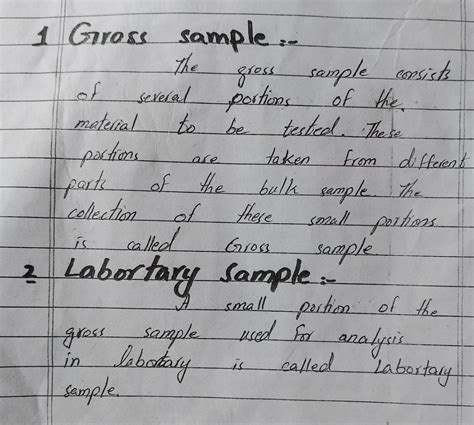 1 Gross sample :-
The gross sample consists
of several portions of the.
material to be tested. These
portions are taken from different
parts of the bulk sample. The
collection of these small portions
is called Gross sample
2 Labortary sample :-
A small portion of the
gross sample used for analysis
in labortary is called Labortary
sample.